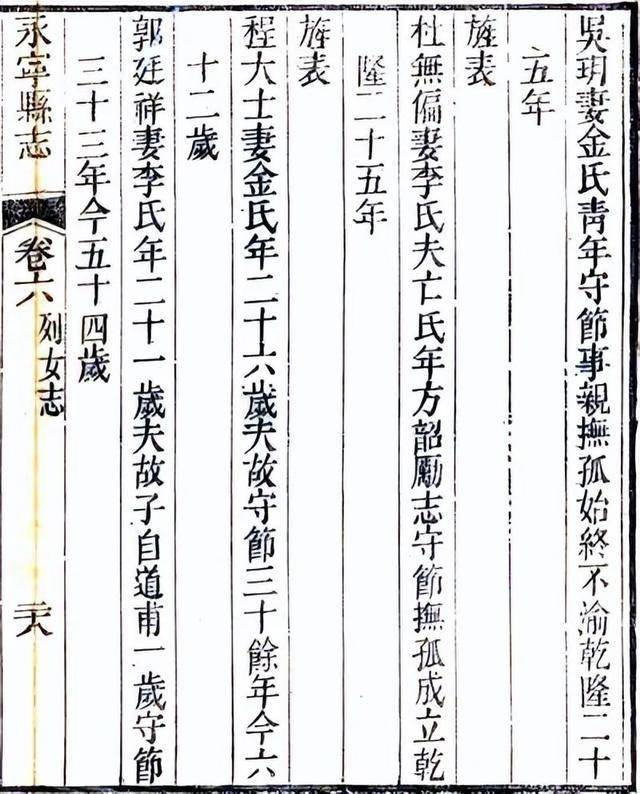 吳玥妻金氏靑年守節事親撫孤始終不渝乾隆二十
五年
旌表
杜無偏妻李氏夫亡氏年方韶勵志守節撫孤成立乾
隆二十五年
旌表
程大士妻金氏年二十六歲夫故守節三十餘年今六
十二歲
郭廷祥妻李氏年二十一歲夫故子自道甫一歲守節
三十三年今五十四歲
永寧縣志
卷六
列女志
二十八